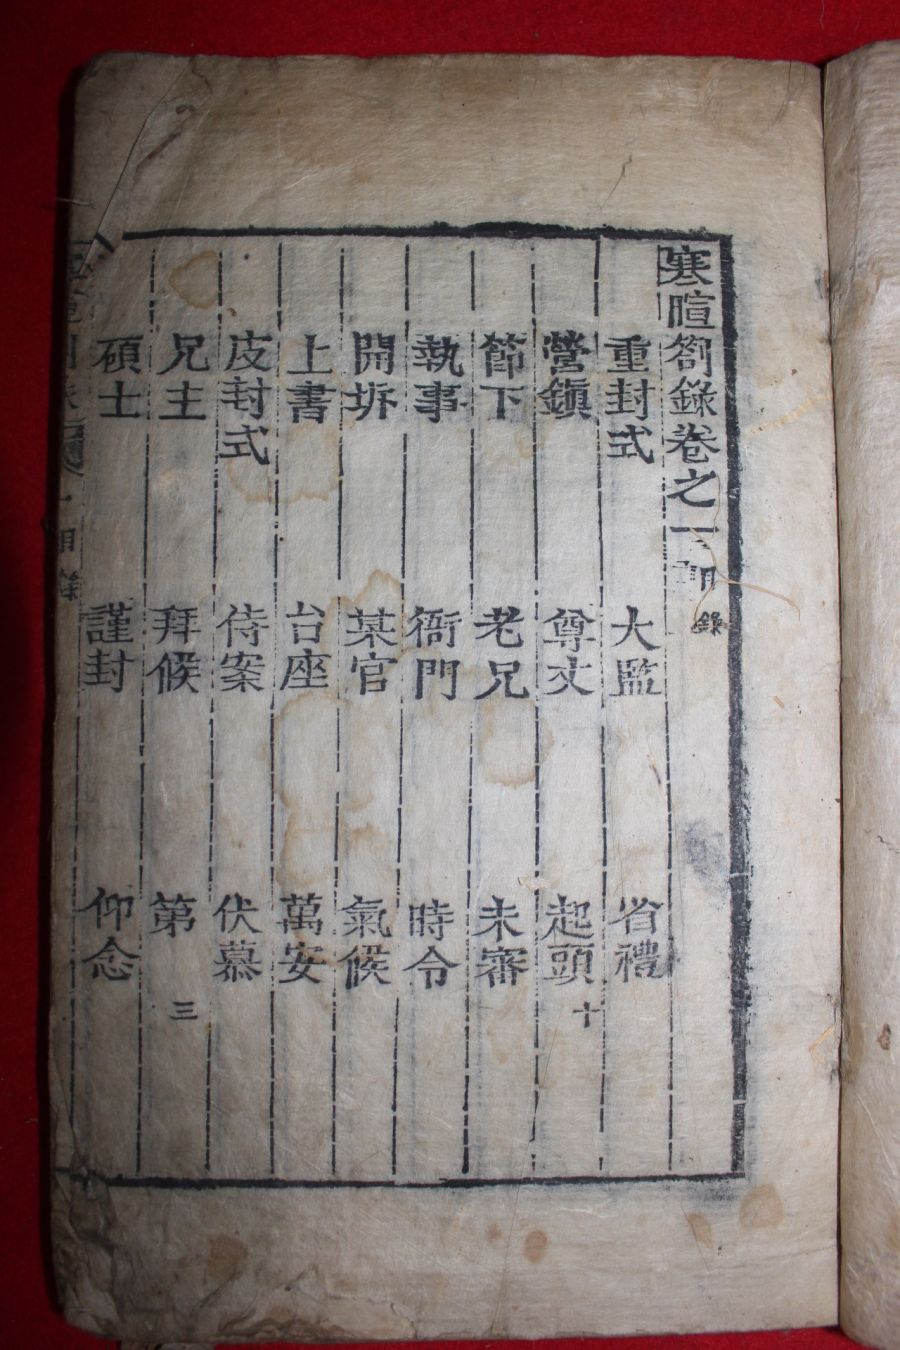 寒暄劄錄卷之一目錄
重封式 大監 省禮
營鎭 尊丈 起頭十
節下 老兄 未審
執事 衙門 時令
開坼 某官 氣候
上書 台座 萬安
皮封式 侍案 伏慕
兄主 拜候 第三
碩士 謹封 仰念
目錄